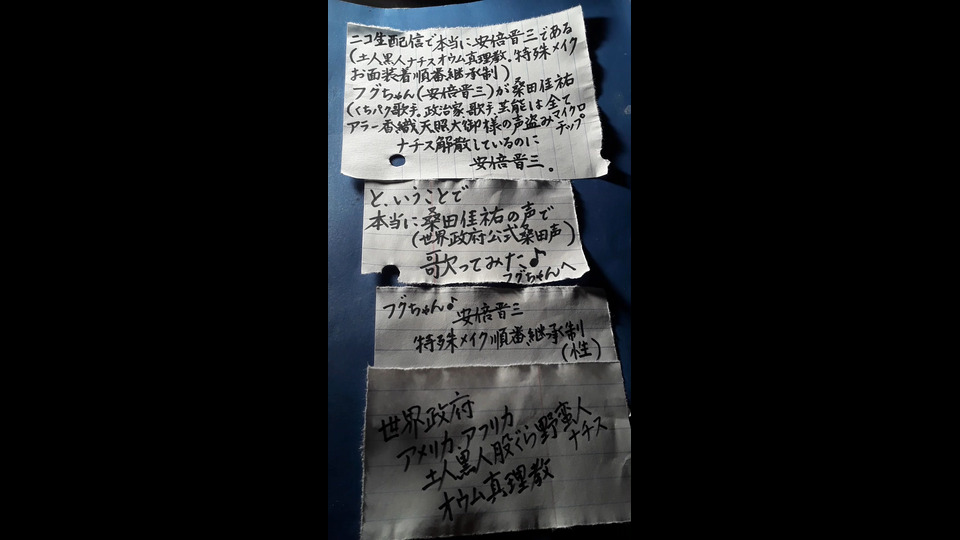 ニコ生配信で本当に安倍晋三である
(土人黒人ナチスオウム真理教.特殊メイク
お面装着順番継承制)
フグちゃん(安倍晋三)が桑田佳祐
(くちパク歌手.政治家.歌手.芸能は全て
アラー香織天照大御様の声盗みマイクロ
チップ
ナチス解散しているのに
安倍晋三。
と、いうことで
本当に桑田佳祐の声で
(世界政府公式桑田声)
歌ってみた♪
フグちゃんへ
フグちゃん♪
安倍晋三
特殊メイク順番継承制
(性)
世界政府
アメリカ.アフリカ
土人黒人股ぐら野蛮人
ナチス
オウム真理教